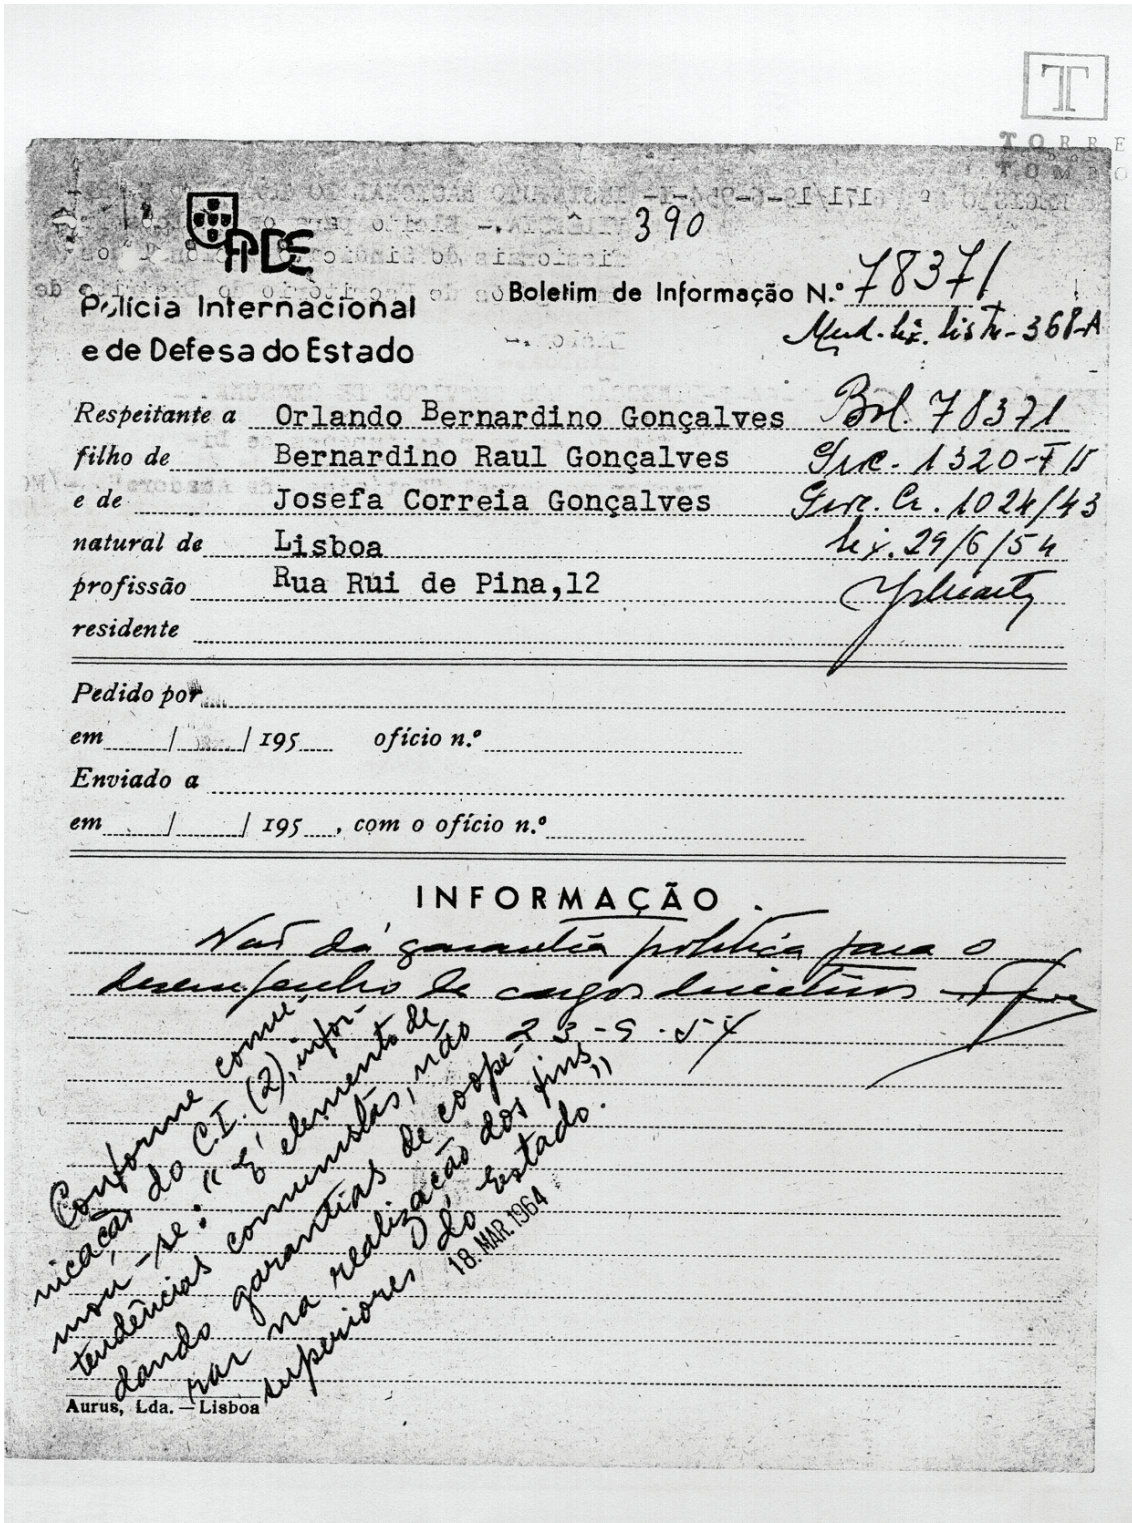 T
TORRE
DO
TOMBO
390
PIDE
Polícia Internacional
e de Defesa do Estado
Boletim de Informação N.º 78371
368-A
Respeitante a Orlando Bernardino Gonçalves Bol. 78371
filho de Bernardino Raul Gonçalves 1320-
e de Josefa Correia Gonçalves Cr. 1024/43
natural de Lisboa Lix. 29/6/54
profissão Rua Rui de Pina,12
residente
Pedido por
em / / 195 ofício n.º
Enviado a
em / / 195 , com o ofício n.º
INFORMAÇÃO
Não dá garantia política para o
desempenho de cargos directivos
23-9-54
Conforme comu-
nicação do C.I. (2), infor-
mou-se: "É elemento de
tendências comunistas, não
dando garantias de coope-
rar na realização dos fins
superiores do Estado."
18. MAR. 1964
Aurus, Lda. — Lisboa